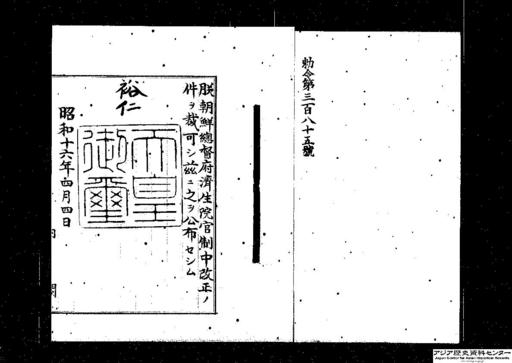 勅令第三百八十五號
朕朝鮮總督府濟生院官制中改正ノ
件ヲ裁可シ茲ニ之ヲ公布セシム
裕仁
天皇
御璽
昭和十六年四月四日
内閣
アジア歴史資料センター
Japan Center for Asian Historical Records